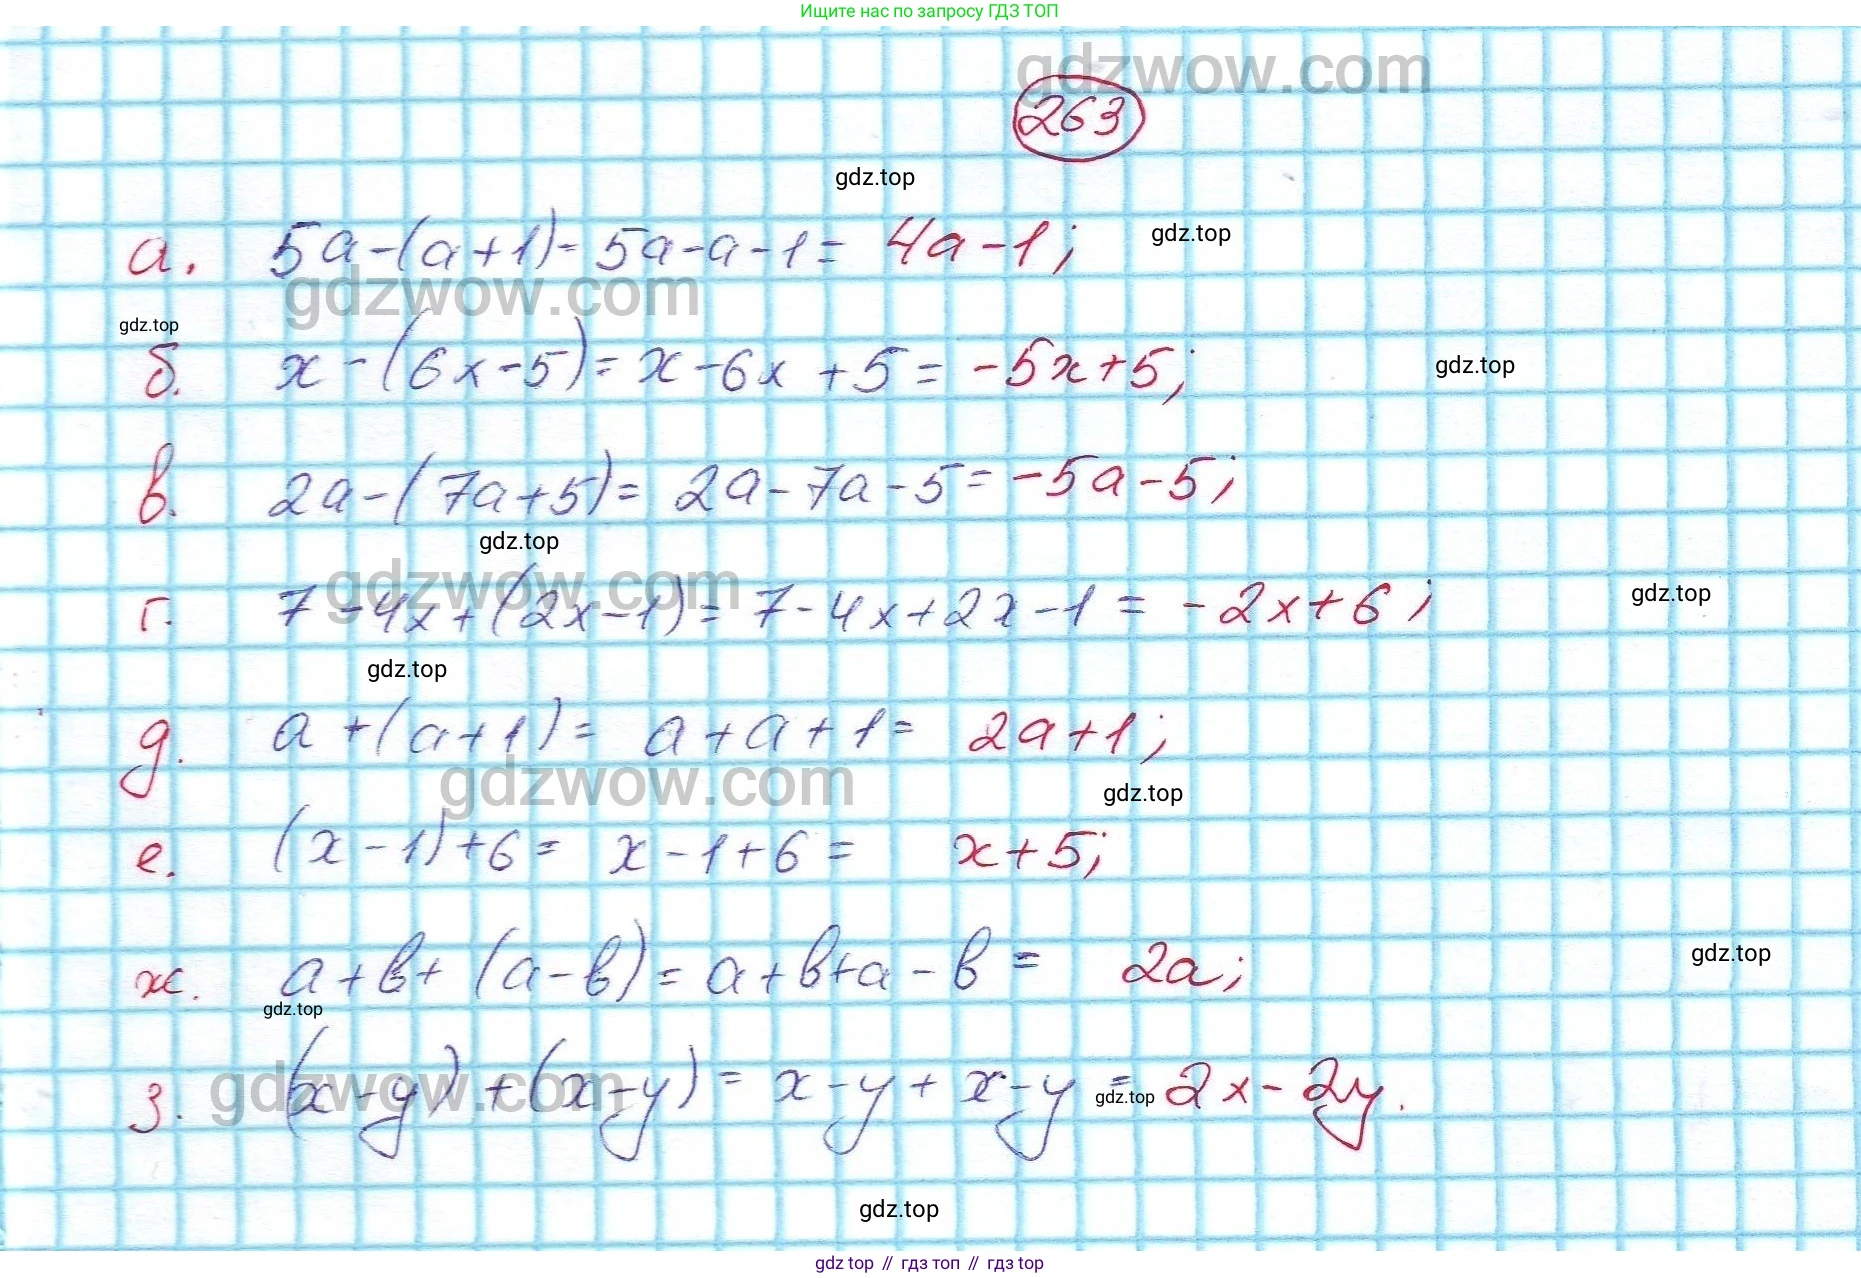 Ищите нас по запросу ГДЗ ТОП
gdzwow.com
263
gdz.top
а. 5a-(a+1)= 5a-a-1= 4a-1; gdz.top
gdzwow.com
gdz.top
б. x-(6x-5)= x-6x+5= -5x+5; gdz.top
в. 2a-(7a+5)= 2a-7a-5= -5a-5;
gdz.top
gdzwow.com
г. 7-4x+(2x-1)= 7-4x+2x-1= -2x+6; gdz.top
gdz.top
д. a+(a+1)= a+a+1= 2a+1;
gdzwow.com gdz.top
е. (x-1)+6= x-1+6= x+5;
ж. a+b+(a-b)= a+b+a-b= 2a; gdz.top
gdz.top
gdzwow.com
з. (x-y)+(x-y)= x-y+x-y= 2x-2y.
gdz.top
gdz.top
gdz.top // гдз топ // гдз top